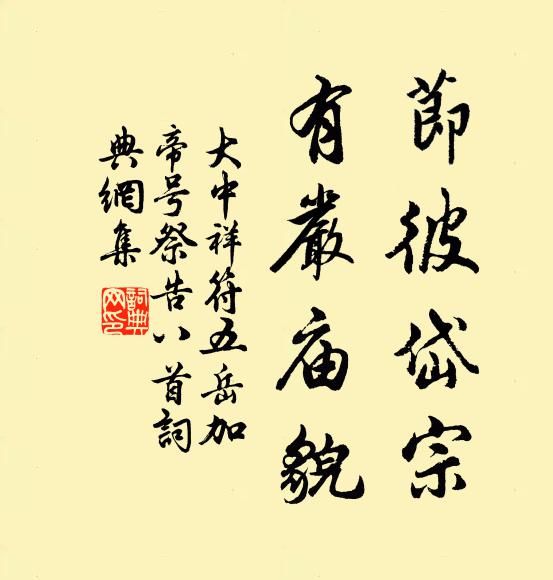 節彼岱宗
有嚴庙貌
大中祥符五岳加
帝号祭告八首詞
典網集
詞典网印